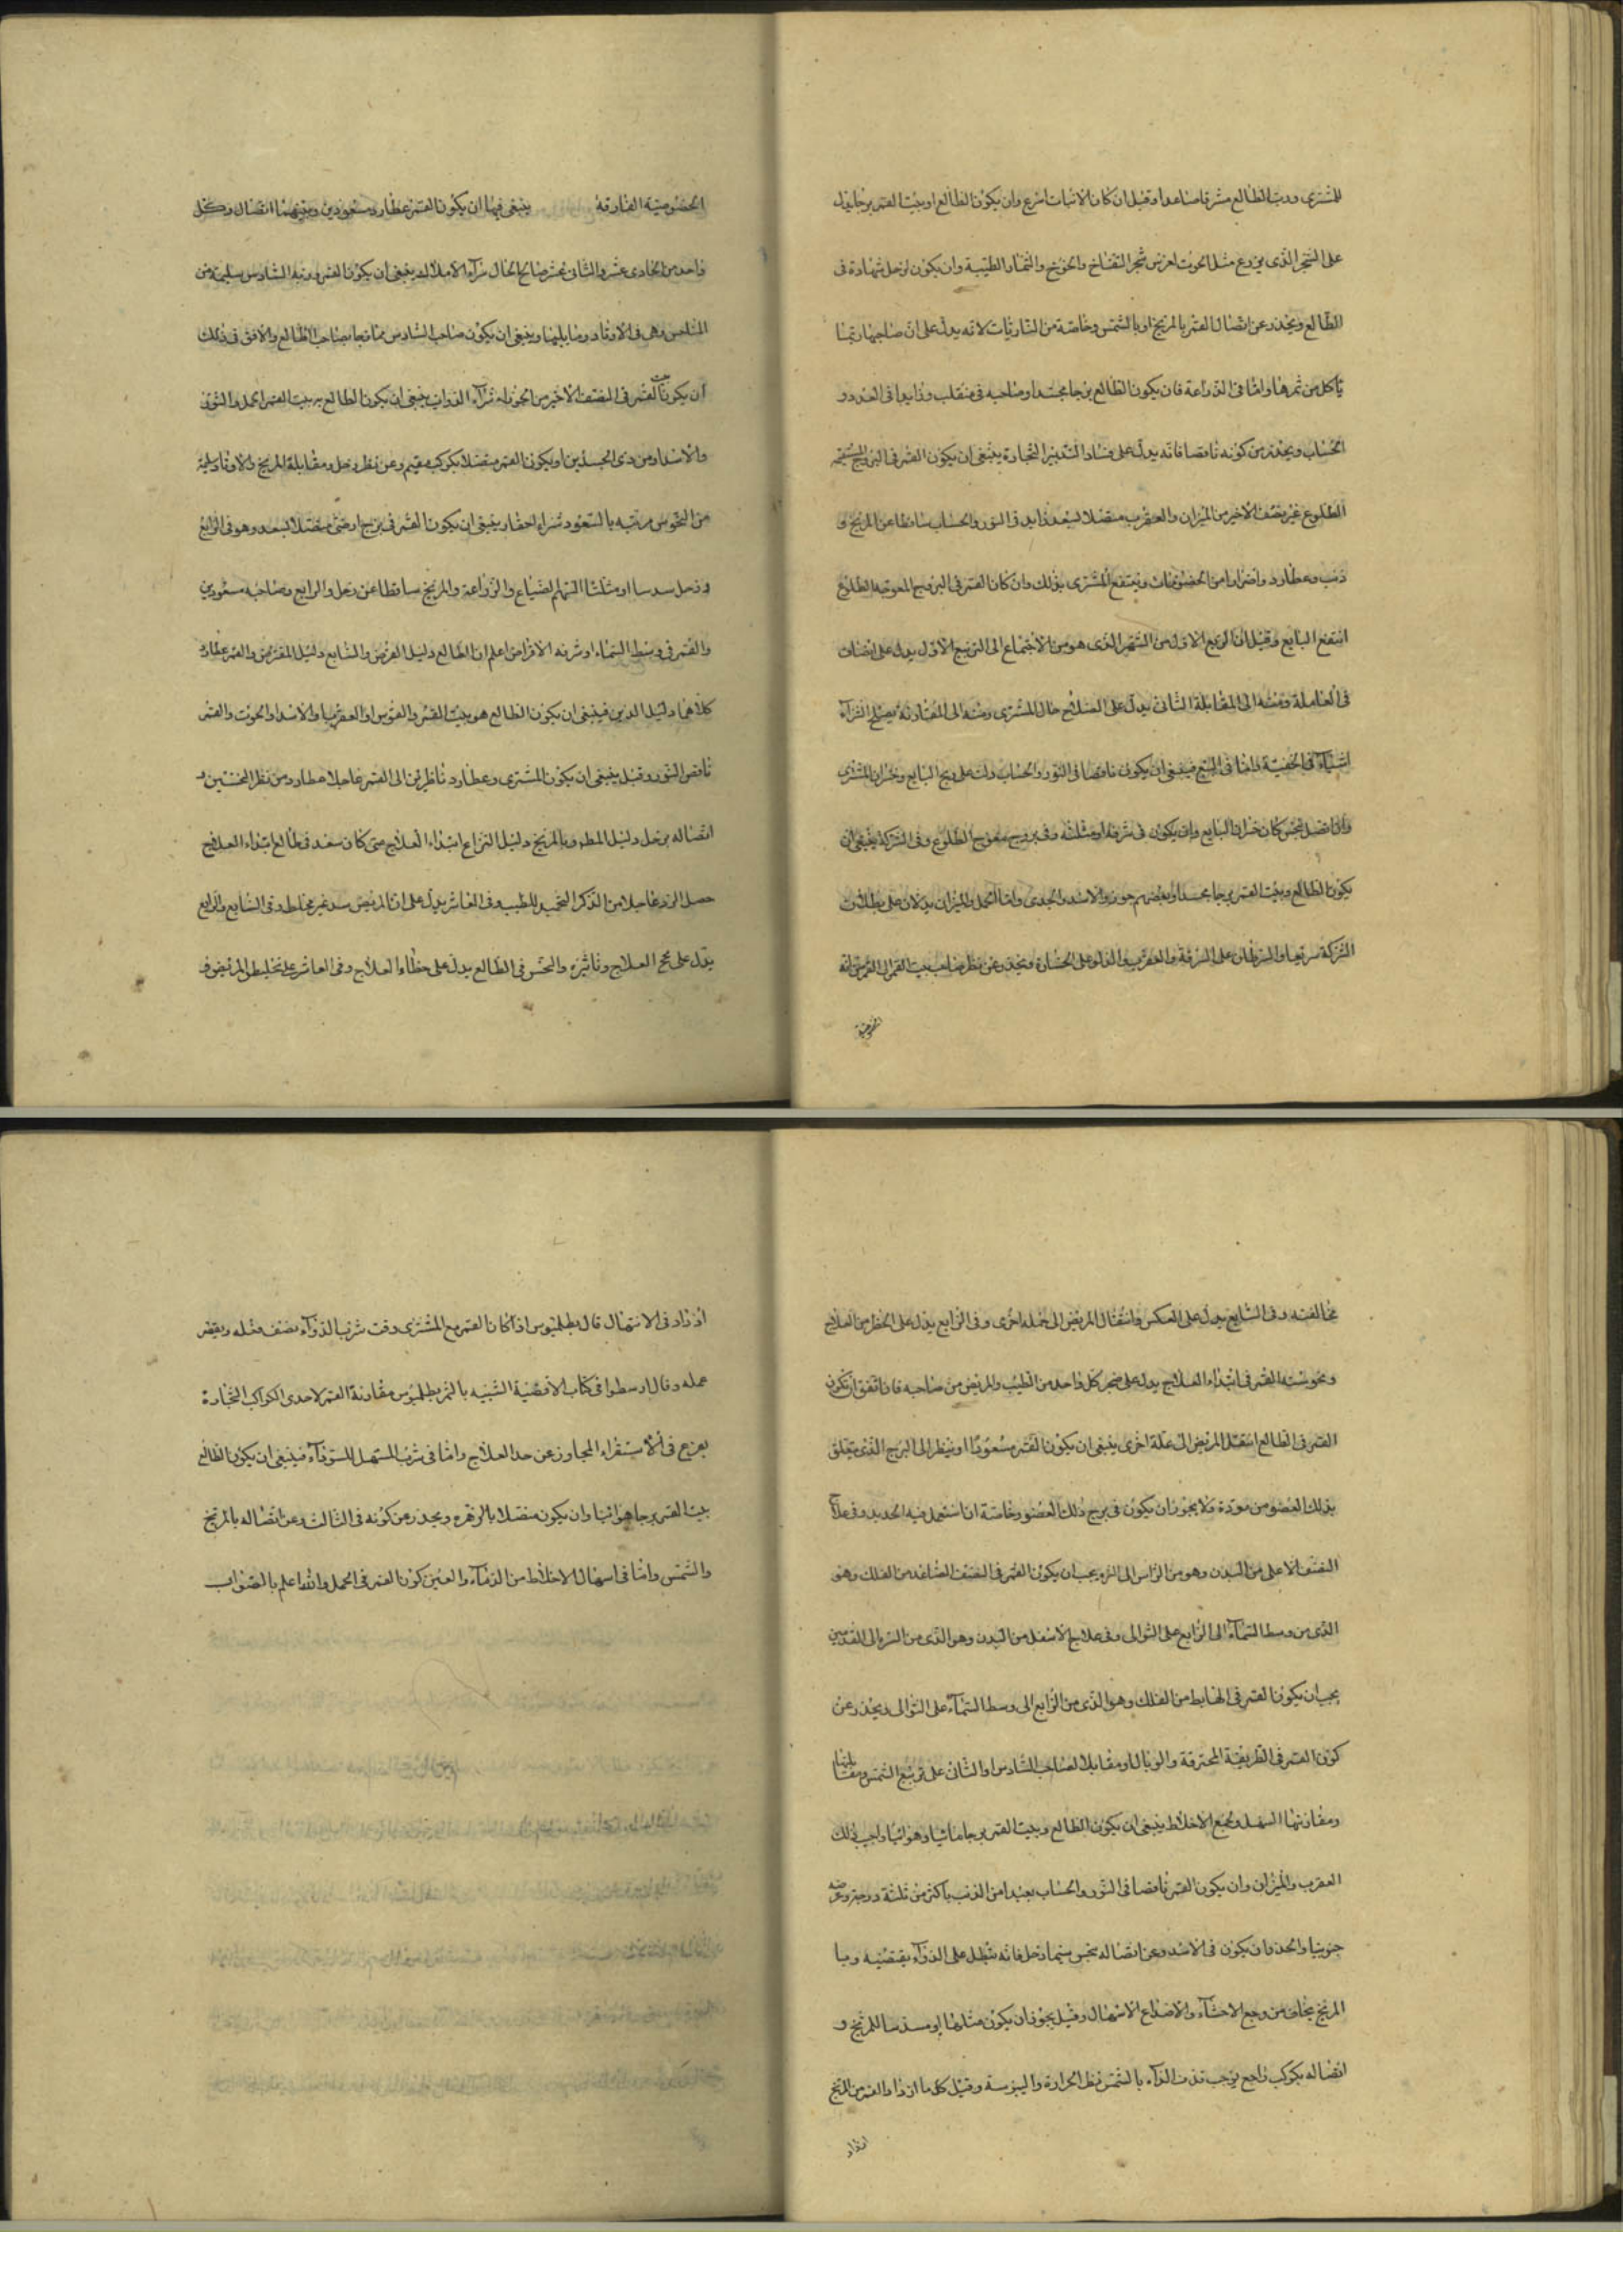 للمشترى ورب الطالع مشرقا صاعدا وقيل ان كان الانبات اسرع وان يكون الطالع او بيت القمر برجا يدل
على الشجر الذى يزرع مثل الحوت لغرس شجر التفاح والخوخ والثمار الطيبة وان يكون لزحل شهادة فى
الطالع ويحذر عن اتصال القمر بالمريخ او بالشمس وخاصة من الناريات لانه يدل على ان صاحبها ربما
ياكل من ثمرها واما فى الزراعة فان يكون الطالع برجا مجسدا وصاحبه فى منقلب وزايدا فى العدد و
الحساب ويحذر من كونه ناقصا فانه يدل على فساد التدبير التجارة ينبغى ان يكون القمر فى البروج المستقيمة
الطلوع غير نصف الاخير من الميزان والعقرب متصلا لسعد زايد فى النور والحساب ساقطا عن المريخ و
ذنب وعطارد واضرارا من الخصومات وينتفع المشترى بذلك وان كان القمر فى البروج المعوجة الطلوع
انتفع البايع وقيل ان الربع الاول من الشهر الذى هو من الاجتماع الى التربيع الاول يدل على انصاف
فى المعاملة ومنه الى المقابلة الثانى يدل على الصلاح حال المشترى ومنه الى المقارنة يصلح لشراء
اشياء فى الخفية واما فى البيع فينبغى ان يكون ناقصا فى النور والحساب دلت على ربح البايع وخسران المشترى
واذا اتصل بنحس كان خسران البايع وان يكون فى شرفه او مثلثه وفى بروج معوج الطلوع وفى الشركة ينبغى ان
يكون الطالع وبيت القمر برجا مجسدا وبعضهم جوزوا الاسد والجدى واما الحمل والميزان يدلان على بطلان
الشركة سريعا والسرطان على السرقة والعقرب والدلو على الخسارة ويحذر عن نظر صاحب بيت القمر الى القمر
الخصومية المفارقة ينبغى فيها ان يكون القمر عطارد مسعودين وبينهما اتصال وكل
واحد من الحادى عشر والثانى عشر صالح الحال شراء الاملاك ينبغى ان يكون القمر ورب السادس سليمة من
المناحس وهى فى الاوتاد وما يليها وينبغى ان يكون صاحب السادس ممازجا بصاحب الطالع والاوفق فى ذلك
ان يكون القمر فى النصف الاخير من الجوزاء شراء الدواب ينبغى ان يكون الطالع بربيت القمر الحمل والثور
والاسد او من ذى الجسدين او يكون القمر متصلا بكوكب مقيم وعن نظر زحل ومقابلة المريخ والاوتاد سليمة
من النحوس مرتبه بالسعود شراء احقار ينبغى ان يكون القمر فى برج ارضى متصلا بسعد وهو فى الرابع
وزحل سدسا او مثلثا السهم الضياع والزراعة والمريخ ساقطا عن زحل والرابع وصاحبه مسعودين
والقمر فى وسط السماء او شرفه الاقراض اعلم ان الطالع دليل القرض والسابع دليل المقترض والقمر عطارد
كلاهما دليل الدين فينبغى ان يكون الطالع هو بيت القمر والقوس او العقرب او الاسد او الحوت والقمر
ناقص النور وقيل ينبغى ان يكون المشترى وعطارد ناظرين الى القمر عاجلا عطارد من نظر النحسين و
اتصاله بزحل دليل المطل وبالمريخ دليل النزاع ابتداء العلاج متى كان سعد فى طالع ابتداء العلاج
حصل الرزق عاجلا من الذكر التحميد للطبيب وفى العاشر يدل على ان المريض سد غير مخلط وفى السابع والرابع
يدل على نجح العلاج وتاثيره والنحس فى الطالع يدل على خطاء العلاج وفى العاشر على تخليط المريض و
مخالفته وفى السابع يدل على العكس وانتقال المريض الى علة اخرى وفى الرابع يدل على الخطر من العلاج
ونحوسته القمر فى ابتداء العلاج يدل على ضجر كل واحد من الطبيب والمريض من صاحبه فان اتفق ان يكون
القمر فى الطالع انتقل المريض الى علة اخرى ينبغى ان يكون القمر مسعودا او ينظر الى البرج الذى يتعلق
بذلك العضو من مودة ولا يجوز ان يكون فى برج ذلك العضو وخاصة ان استعمل فيه الحديد وفى علاج
النصف الاعلى من البدن وهو من الراس الى السره يجب ان يكون القمر فى النصف الصاعد من الفلك وهو
الذى من وسط السماء الى الرابع على التوالى وفى علاج الاسفل من البدن وهو الذى من السره الى القدمين
يجب ان يكون القمر فى الهابط من الفلك وهو الذى من الرابع الى وسط السماء على التوالى ويحذر عن
كون القمر فى الطريقة المحترقة والوبال او مقابلا لصاحب السادس او الثانى على تربيع الشمس ومقابلتها
ومقارنتها المسهل وجمع الاخلاط ينبغى ان يكون الطالع وبيت القمر برجا مائيا وهوائيا واجب ذلك
العقرب والميزان وان يكون القمر ناقصا فى النور والحساب بعيدا من الذنب باكثر من ثلثة درجة وعرضه
جنوبيا والحذر ان يكون فى الاسد وعن اتصاله بنحس سيما زحل فانه يبطل على الدواء بقبضيه وبا
المريخ يخاف من وجع الاحشاء والاضلاع الاسهال وقيل يجوز ان يكون مثلثا او مسدسا للمريخ و
اتصاله بكوكب راجع يوجب قذف الدواء بالشمس نظر الحرارة واليبوسة وقيل كل ما ازداد القمر من المريخ
ازداد
ازداد فى الاسهال قال بطلميوس اذا كان القمر مع المشترى وقت شرب الدواء يضعف فعله وينقص
عمله وقال ارسطوا فى كتاب الاقضية الشبيه بالثمر بطلميوس مقارنة القمر لاحدى الكواكب
يفزع فى الاستقراء المجاوز عن حد العلاج واما فى شرب المسهل للسوداء فينبغى ان يكون الطالع
بيت القمر برجا هوائيا وان يكون متصلا بالزهره ويحذر من كونه فى الثالث وعن اتصاله بالمريخ
والشمس واما فى اسهال الاخلاط من الدماء والعين كون القمر فى الحمل والله اعلم بالصواب